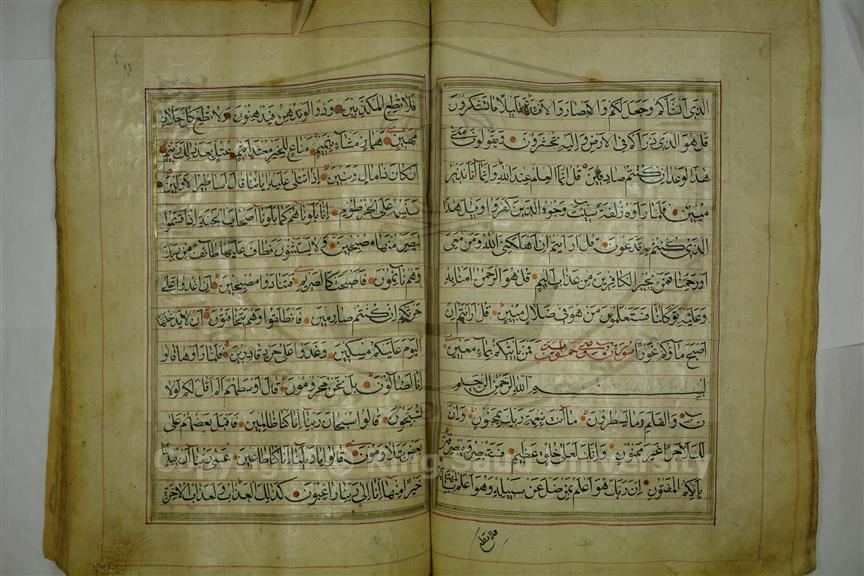 الذي انشاكم وجعل لكم والابصار والافئدة قليلا ما تشكرون
قل هو الذي ذراكم في الارض واليه تحشرون ويقولون متى
هذا الوعد ان كنتم صادقين قل انما العلم عند الله وانما انا نذير
مبين فلما راوه زلفة سيئت وجوه الذين كفروا وقيل هذا
الذي كنتم به تدعون قل ارايتم ان اهلكني الله ومن معي
او رحمنا فمن يجير الكافرين من عذاب اليم قل هو الرحمن امنا به
وعليه توكلنا فستعلمون من هو في ضلال مبين قل ارايتم ان
اصبح ماؤكم غورا فمن ياتيكم بماء معين
بسم الله الرحمن الرحيم
ن والقلم وما يسطرون ما انت بنعمة ربك بمجنون وان
لك لاجرا غير ممنون وانك لعلى خلق عظيم فستبصر ويبصرون
بايكم المفتون ان ربك هو اعلم بمن ضل عن سبيله وهو اعلم
فلا تطع
فلا تطع المكذبين ودوا لو تدهن فيدهنون ولا تطع كل حلاف
مهين هماز مشاء بنميم مناع للخير معتد اثيم عتل بعد ذلك زنيم
ان كان ذا مال وبنين اذا تتلى عليه اياتنا قال اساطير الاولين
سنسمه على الخرطوم انا بلوناهم كما بلونا اصحاب الجنة اذ اقسموا
ليصرمنها مصبحين ولا يستثنون فطاف عليها طائف من ربك
وهم نائمون فاصبحت كالصريم فتنادوا مصبحين ان اغدوا على
حرثكم ان كنتم صارمين فانطلقوا وهم يتخافتون ان لا يدخلنها
اليوم عليكم مسكين وغدوا على حرد قادرين فلما راوها قالوا
انا لضالون بل نحن محرومون قال اوسطهم الم اقل لكم لولا
تسبحون قالوا سبحان ربنا انا كنا ظالمين فاقبل بعضهم على
بعض يتلاومون قالوا يا ويلنا انا كنا طاغين عسى ربنا ان يبدلنا
خيرا منها انا الى ربنا راغبون كذلك العذاب ولعذاب الاخرة
King Saud University